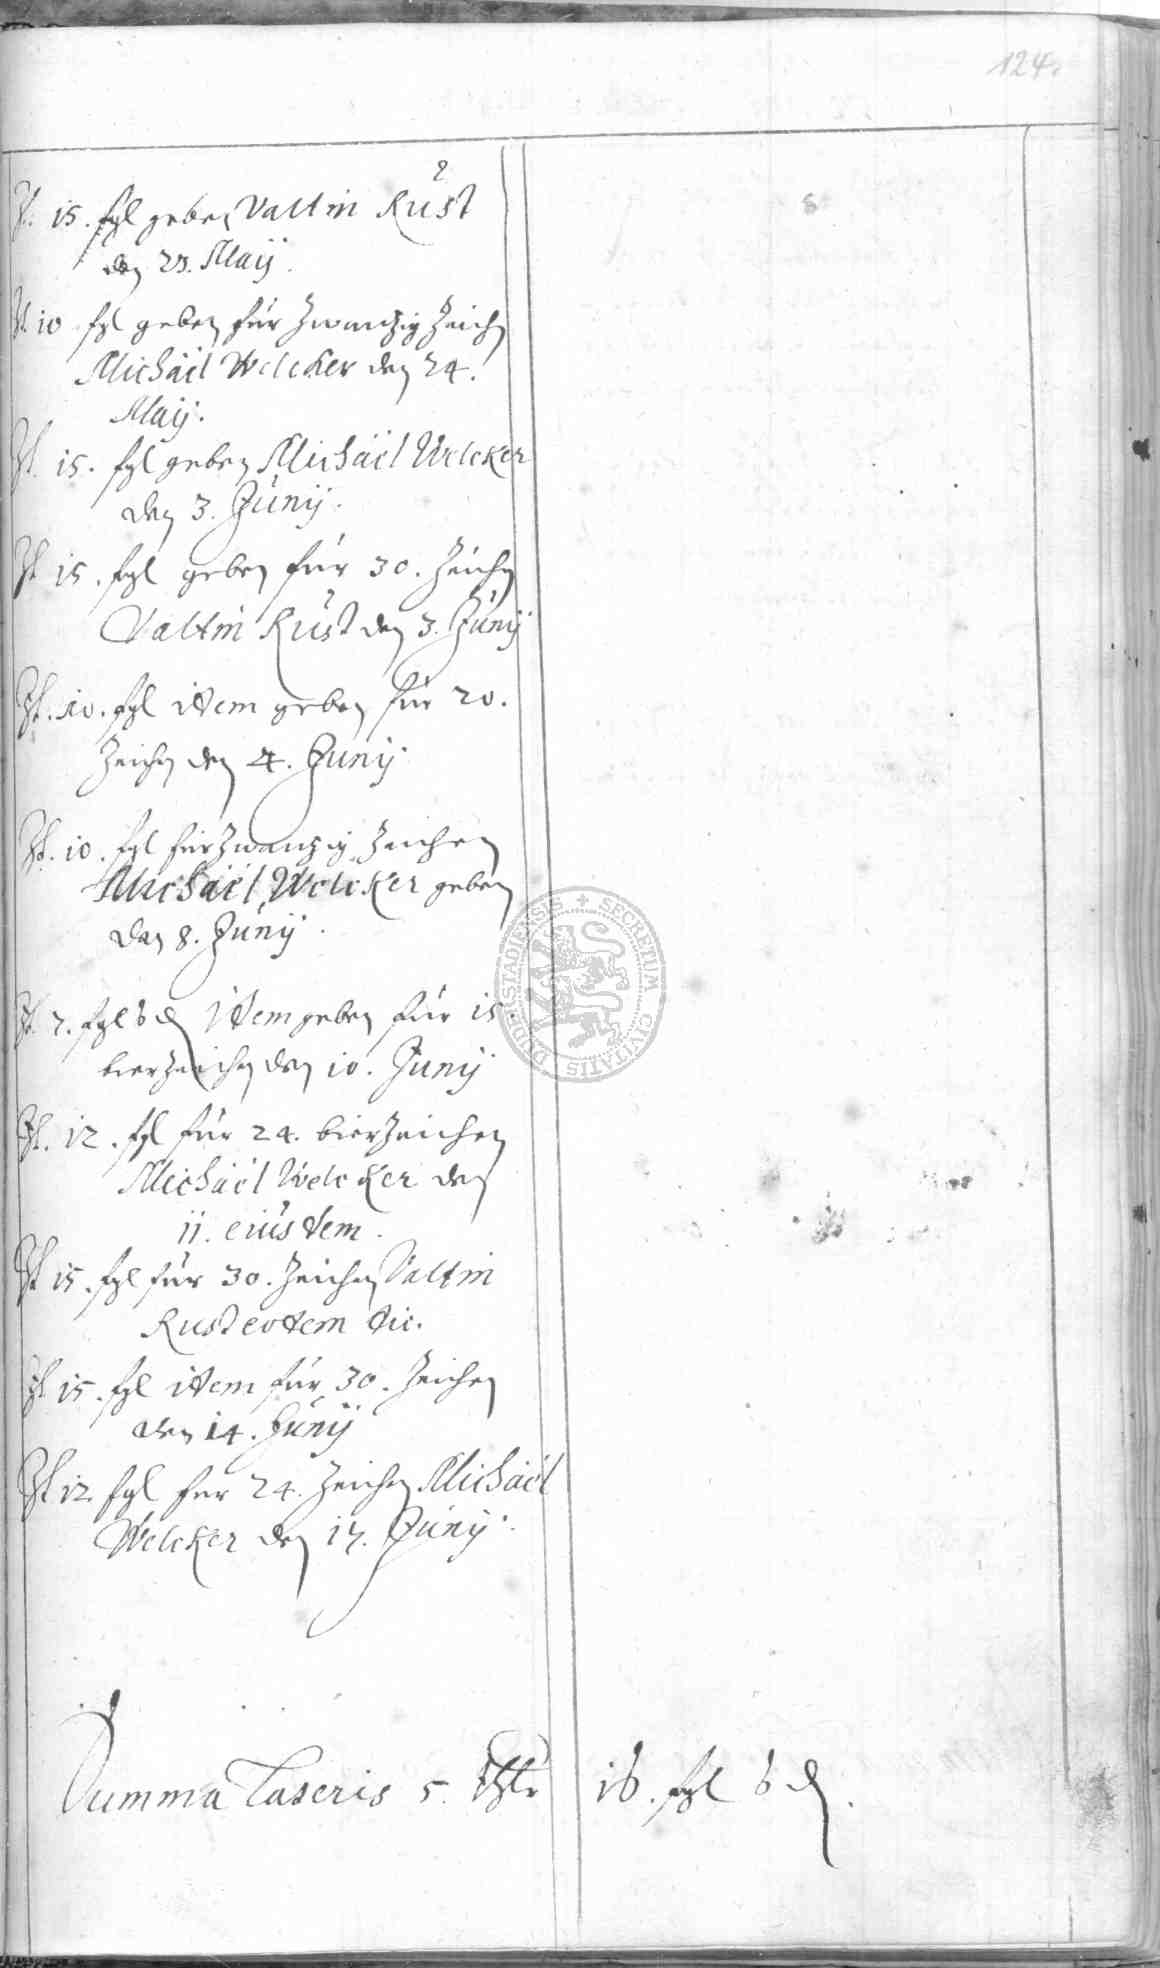 124.
It. 15. fgl geben Valtin Rust
den 23. Maij.
It. 10 fgl geben für zwantzig Zeichen
Michäel Welcker den 24.
Maij.
It. 15. fgl geben Michäel Welcker
den 3. Junij.
It. 15. fgl geben für 30. Zeichen
Valtin Rust den 3. Junij
It. 10. fgl item geben für 20.
Zeichen den 4. Junij.
It. 10. fgl für zwantzig Zeichen
Michäel Welcker geben
den 8. Junij.
It. 7. fgl 6 ₰ item geben für 15.
bierzeichen den 10. Junij
It. 12. fgl für 24. bierzeichen
Michäel Welcker den
11. eiusdem.
It. 15. fgl für 30. Zeichen Valtin
Rust eodem die.
It. 15. fgl item für 30. Zeichen
den 14. Junij
It. 12 fgl for 24. Zeichen Michäel
Welcker den 17. Junij.
SECRETUM CIVITATIS DUDERSTADIENSIS
Summa Lateris 5. Thlr 16. fgl 6 ₰.